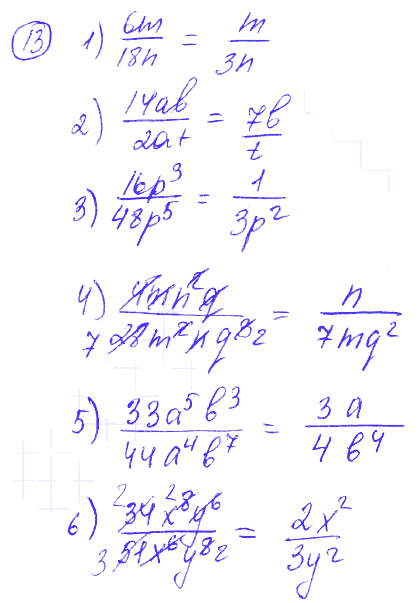 13 1) 6m/18n = m/3n
2) 14ab/2at = 7b/t
3) 16p³/48p⁵ = 1/3p²
4) 4mn²q/7 28m²nq³ 2 = n/7mq²
5) 33a⁵b³/44a⁴b⁷ = 3a/4b⁴
6) 2 34x⁸ 2 y⁶/3 51x⁶y⁸ 2 = 2x²/3y²